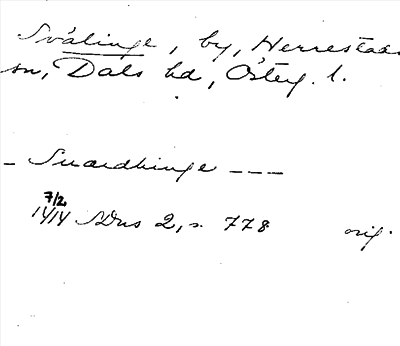 Svälinge, by, Herrestads
sn, Dals hd, Österg. l.
- Suardhinge ---
7/2
1414 SDns 2, s. 778 orig.